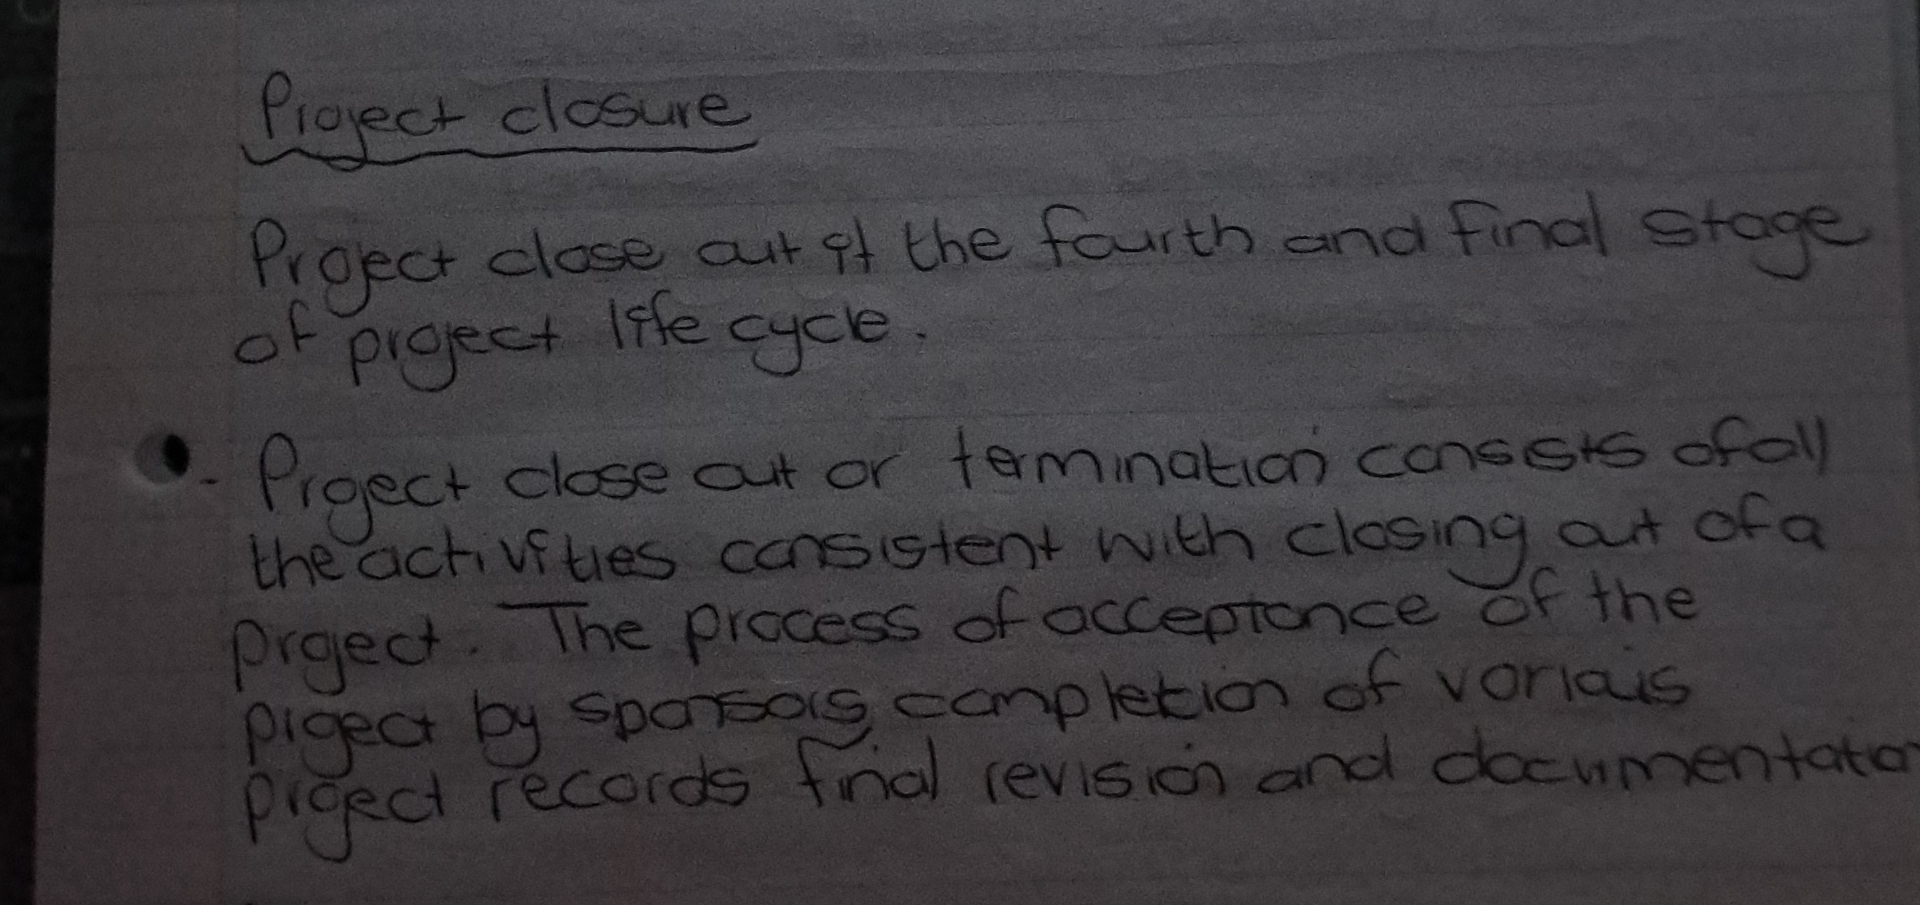 Project closure
Project close out it the fourth and final stage
of project life cycle.
- Project close out or termination consists of all
the activities consistent with closing out of a
project. The process of acceptance of the
project by sponsors, completion of various
project records final revision and documentatio